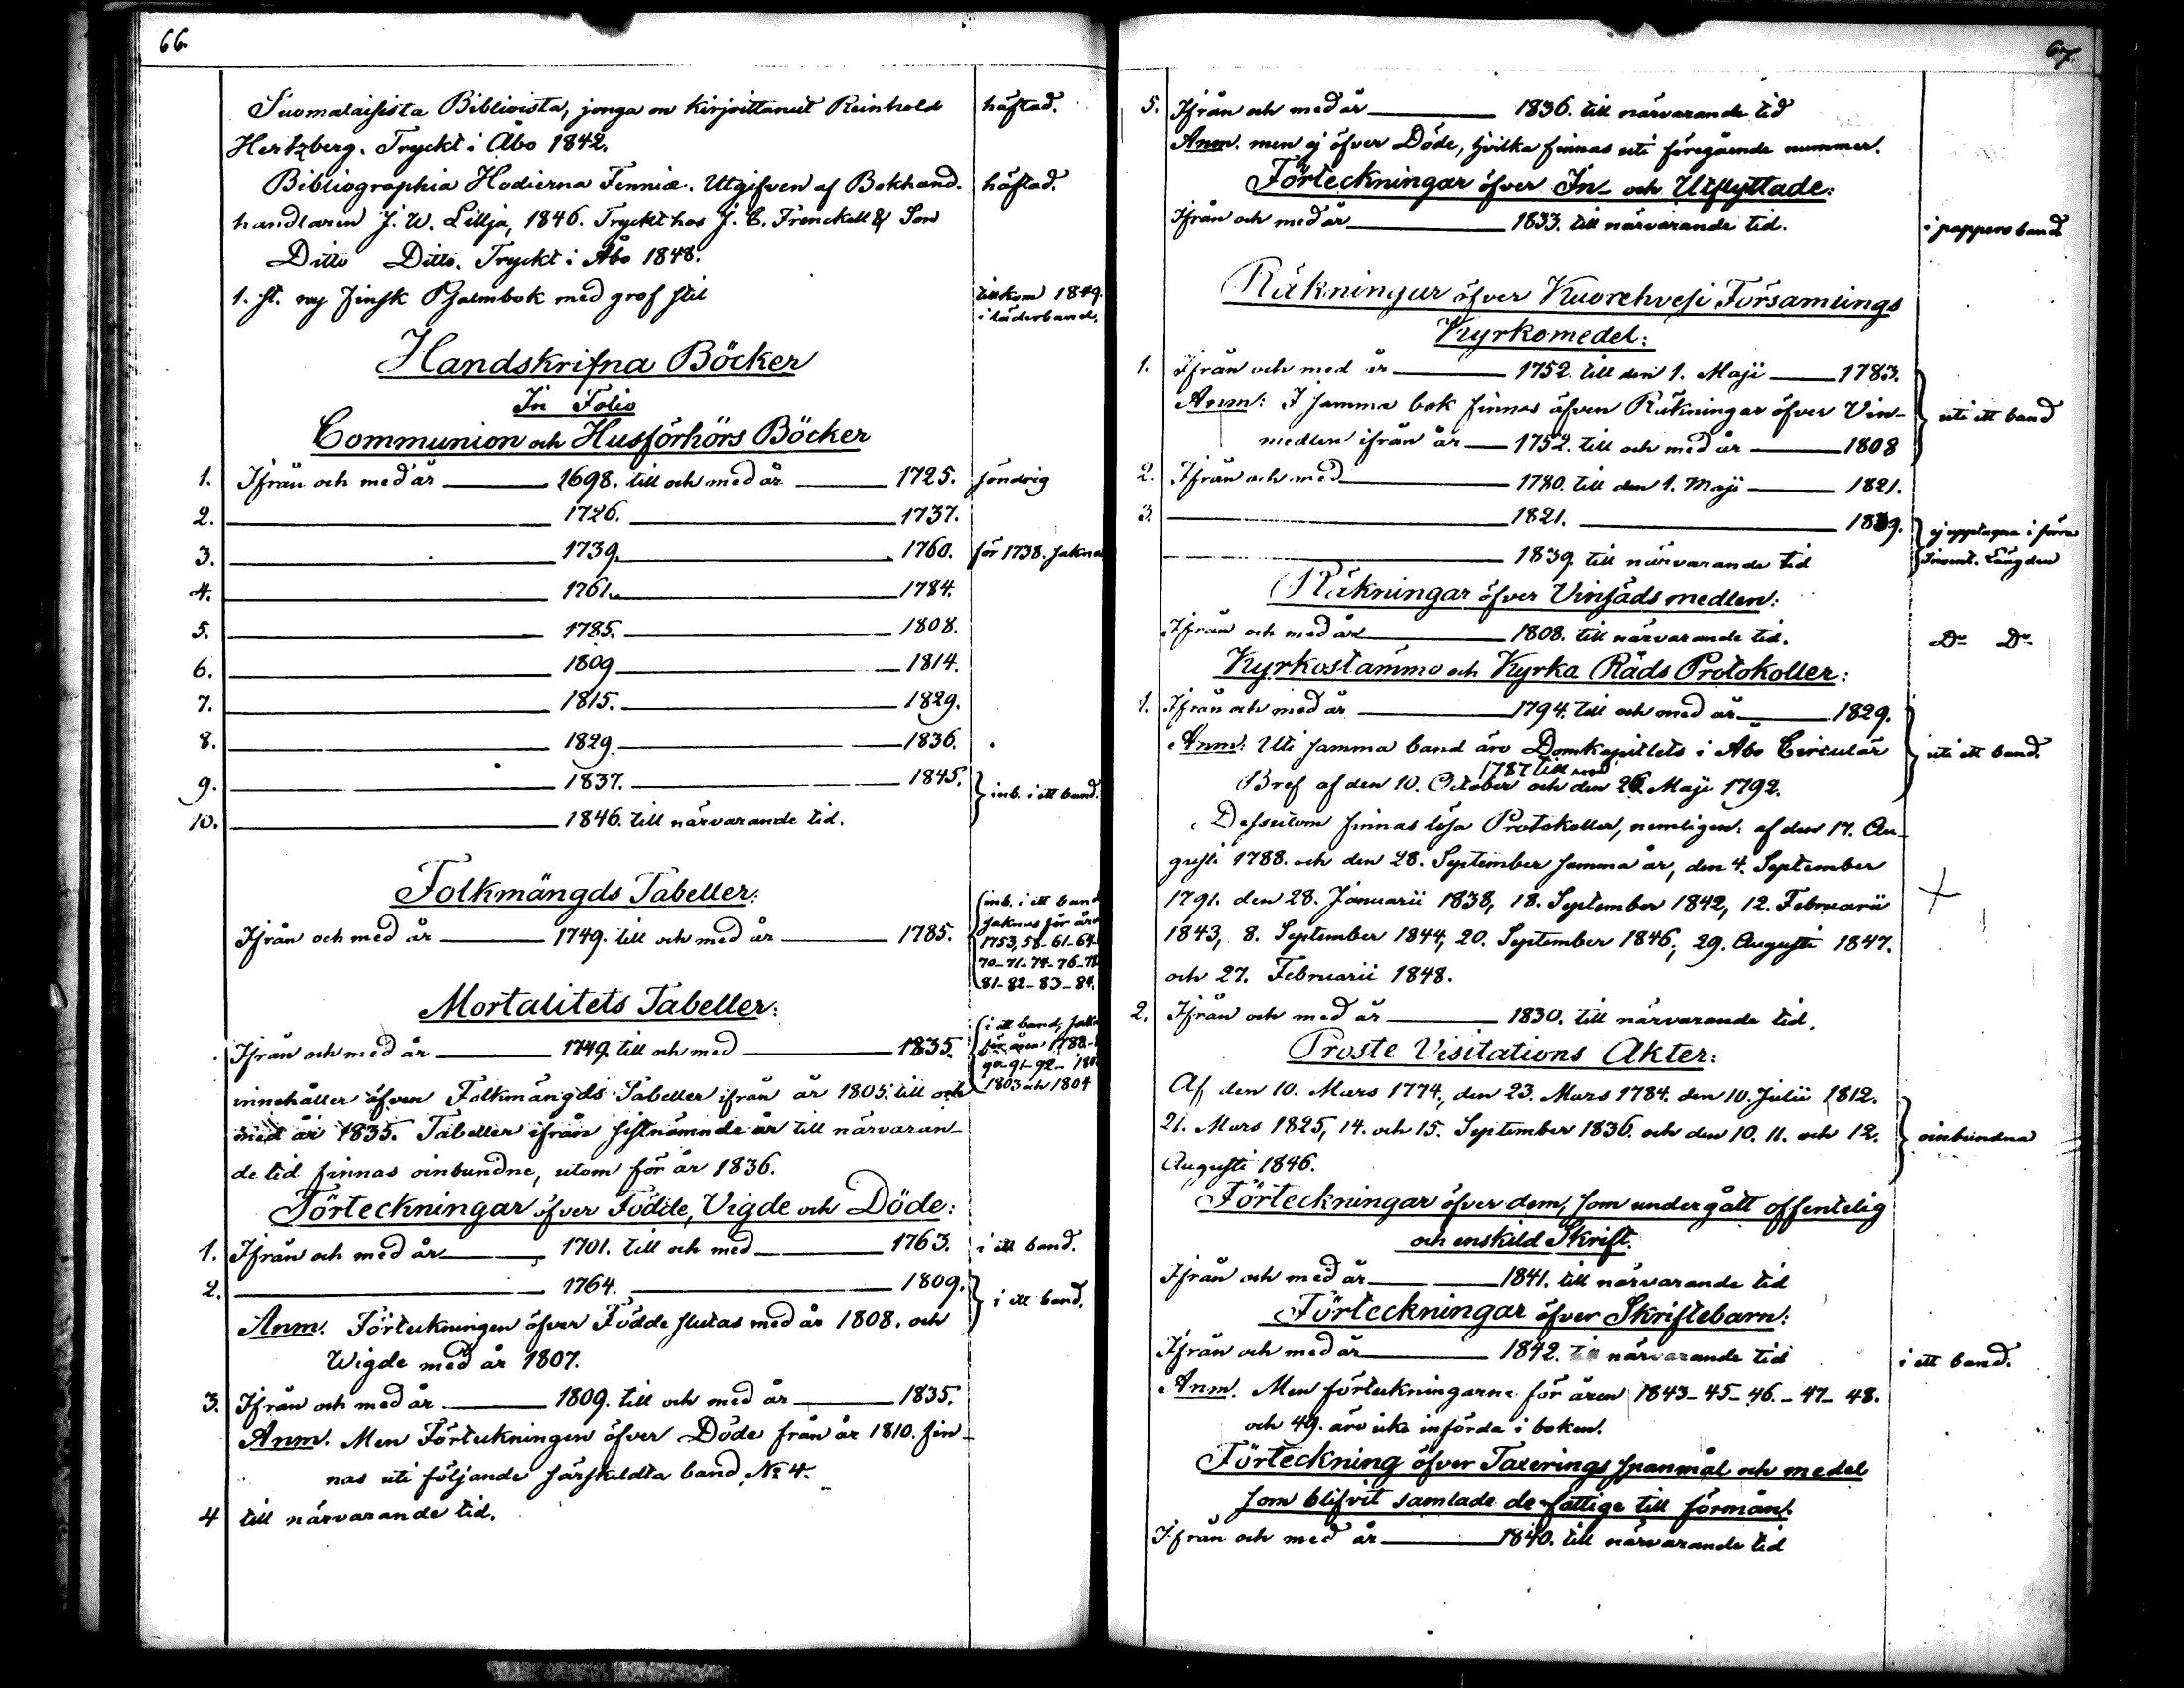 66.
Suomalaisista Biblioista, jonga on kirjoittanut Reinhold häftad.
Hertzberg. Tryckt i Åbo 1842.
Bibliographia Hodierna Fenniæ. Utgifven af Bokhand- häftad.
handlaren J. W. Lillja, 1846. Tryckt hos J. C. Frenckell & Son
Ditto Ditto. Tryckt i Åbo 1848.
1. st. ny Finsk Psalmbok med grof stil tillkom 1849.
i läderband.
Handskrifna Böcker
In Folio
Communion och Husförhörs Böcker
1. Ifrån och med år 1698. till och med år 1725. söndrig
2. 1726. 1737.
3. 1739. 1760. för 1738. sakna
4. 1761. 1784.
5. 1785. 1808.
6. 1809 1814.
7. 1815. 1829.
8. 1829. 1836.
9. 1837. 1845. } inb. i ett band.
10. 1846. till närvarande tid.
Folkmängds Tabeller:
Ifrån och med år 1749. till och med år 1785.
inb. i ett band
saknas för åre
1753, 58-61-64-
70-71-74-76-78
81-82-83-84.
Mortalitets Tabeller:
Ifrån och med år 1749. till och med 1835.
i ett band, sakn
för åren 1788-
90-91-92-180
1803 och 1804
innehåller äfven Folkmängds Tabeller ifrån år 1805. till och
med år 1835. Tabeller ifrån sistnämnde år till närvaran-
de tid finnas oinbundne, utom för år 1836.
Förteckningar öfver Födde, Vigde och Döde:
1. Ifrån och med år 1701. till och med 1763. i ett band.
2. 1764. 1809. } i ett band.
Anm. Förteckningen öfver Födde slutas med år 1808. och
Wigde med år 1807.
3. Ifrån och med år 1809. till och med år 1835.
Anm. Men Förteckningen öfver Döde från år 1810. fin-
nas uti följande särskildta band No 4.
4 till närvarande tid.
67.
5. Ifrån och med år 1836. till närvarande tid
Anm. men ej öfver Döde, hvilka finnas uti föregående nummer.
Förteckningar öfver In- och Utflyttade:
Ifrån och med år 1833. till närvarande tid. i pappers band
Räkningar öfver Kuorehvesi Församlings
Kyrkomedel:
1. Ifrån och med år 1752. till den 1. Maji 1783.
Anm: I samma bok finnas äfven Räkningar öfver Vin- uti ett band
medlen ifrån år 1752. till och med år 1808
2. Ifrån och med 1780. till den 1. Maji 1821.
3. 1821. 1839. ej upptagna i förra
1839. till närvarande tid Invent. Längden
Räkningar öfver Vinsäds medlen:
Ifrån och med år 1808. till närvarande tid. Do Do
Kyrkostämmo och Kyrko Råds Protokoller:
1. Ifrån och med år 1794. till och med år 1829.
Anm: Uti samma band äro Domkapitlets i Åbo Circulär uti ett band.
1787 till med
Bref af den 10. October och den 26. Maji 1792.
Dessutom finnas lösa Protokoller, nemligen: af den 17. Au-
gusti 1788. och den 28. September samma år, den 4. September
1791. den 28. Januarii 1838, 18. September 1842, 12. Februarii
1843, 8. September 1844, 20. September 1846, 29. Augusti 1847.
och 27. Februarii 1848.
2. Ifrån och med år 1830. till närvarande tid.
Proste Visitations Akter:
Af den 10. Mars 1774., den 23. Mars 1784. den 10. Julii 1812.
21. Mars 1825, 14. och 15. September 1836. och den 10. 11. och 12. } oinbundna
Augusti 1846.
Förteckningar öfver dem, som undergått offentelig
och enskild Skrift.
Ifrån och med år 1841. till närvarande tid
Förteckningar öfver Skriftebarn:
Ifrån och med år 1842. närvarande tid i ett band.
Anm. Men förteckningarne för åren 1843-45-46.-47-48.
och 49. äro icke införda i boken.
Förteckning öfver Taxerings spanmål och medel
som blifvit samlade de fattige till förmån.
Ifrån och med år 1840. till närvarande tid